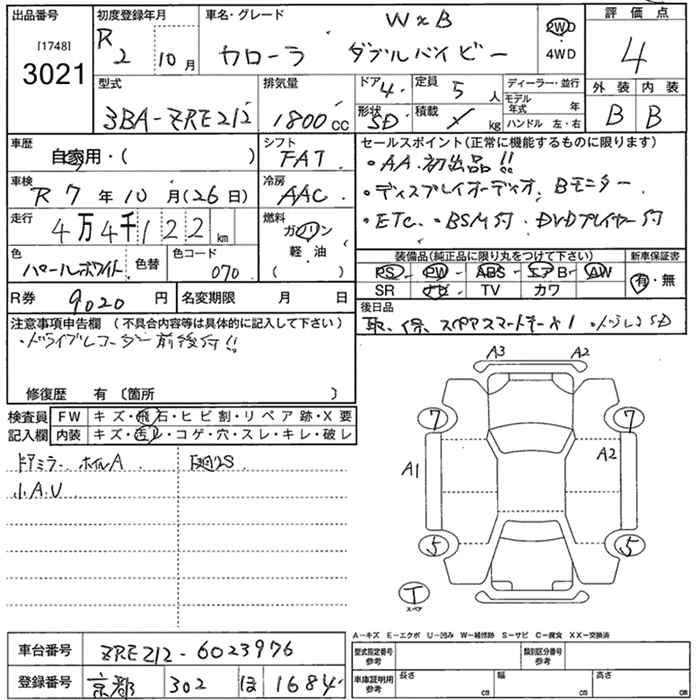 出品番号
[1748]
3021
初度登録年月
R 2 10 月
車名・グレード
W×B
カローラ ダブルバイビー
2WD
・
4WD
評価点
4
外装 内装
B B
型式
3BA-ZRE212
排気量
1800 cc
ドア 4.
定員 5 人
形状 SD.
積載 kg
ディーラー・並行
モデル年式 年
ハンドル 左・右
車歴
自家用・( )
シフト
FAT
車検
R 7 年 10 月 (26 日)
冷房
AAC
走行
4万4千122 km
燃料
ガソリン
軽・油
( )
色
パールホワイト
色替
色コード
070
R券 9020 円
名変期限 月 日
セールスポイント(正常に機能するものに限ります)
・AA初出品!!
・ディスプレイオーディオ、Bモニター
・ETC、・BSM付 ・DVDプレイヤー付
装備品(純正品に限り丸をつけて下さい)
新車保証書
PS・PW・ABS・エアB・AW
SR・ナビ・TV カワ
有・無
後日品
取、保、スペアスマートキー×1
注意事項申告欄 (不具合内容等は具体的に記入して下さい)
・ドライブレコーダー前後付!!
修復歴 有 (箇所 )
検査員記入欄
FW キズ・飛石・ヒビ割・リペア跡・X要
内装 キズ・汚レ・コゲ・穴・スレ・キレ・破レ
ドアミラー ホイルA
小A.U
A3 A2
7 7
A1 A2
5 5
T
スペア
A-キズ E-エクボ U-凹み W-補修跡 S-サビ C-腐食 XX-交換済
車台番号 ZRE212-6023976
登録番号 京都 302 ほ 1684
型式指定番号 参考
類別区分番号 参考
車庫証明用 参考
長さ cm
幅 cm
高さ cm